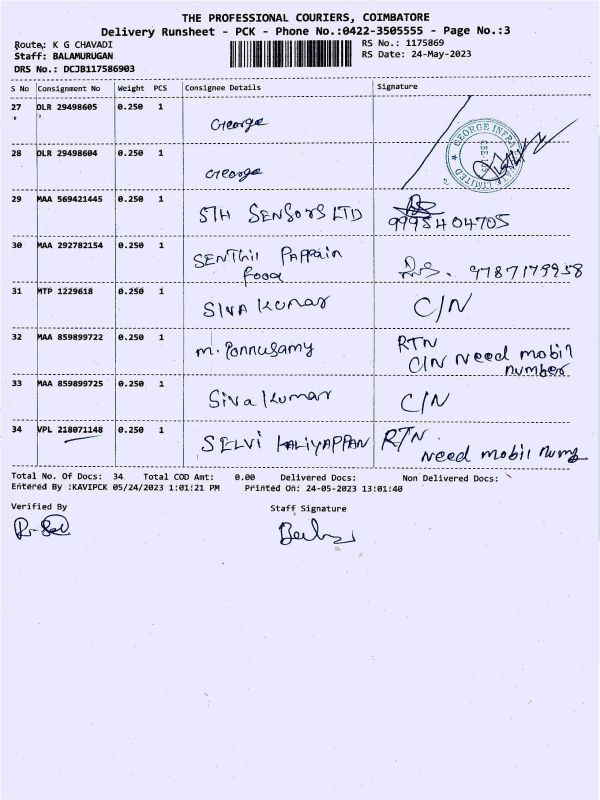 THE PROFESSIONAL COURIERS, COIMBATORE
Delivery Runsheet - PCK - Phone No.:0422-3505555 - Page No.:3
Route: K G CHAVADI
RS No.: 1175869
Staff: BALAMURUGAN
RS Date: 24-May-2023
DRS No.: DCJB117586903
S No Consignment No Weight PCS Consignee Details Signature
27 DLR 29498605 0.250 1 George
GEORGE INFRA LIMITED
28 DLR 29498604 0.250 1 George
29 MAA 569421445 0.250 1 STH SENSORS LTD 99954 04705
30 MAA 292782154 0.250 1 SENTHIL PAPPAIN
food 9787179958
31 MTP 1229618 0.250 1 SIVA KUMAR C/N
32 MAA 859899722 0.250 1 m. Ponnusamy RTN
C/N Need mobil
number
33 MAA 859899725 0.250 1 Siva Kumar C/N
34 VPL 218071148 0.250 1 SELVI KALIYAPPAN RTN
Need mobil numb
Total No. Of Docs: 34 Total COD Amt: 0.00 Delivered Docs: Non Delivered Docs:
Entered By :KAVIPCK 05/24/2023 1:01:21 PM Printed On: 24-05-2023 13:01:40
Verified By Staff Signature